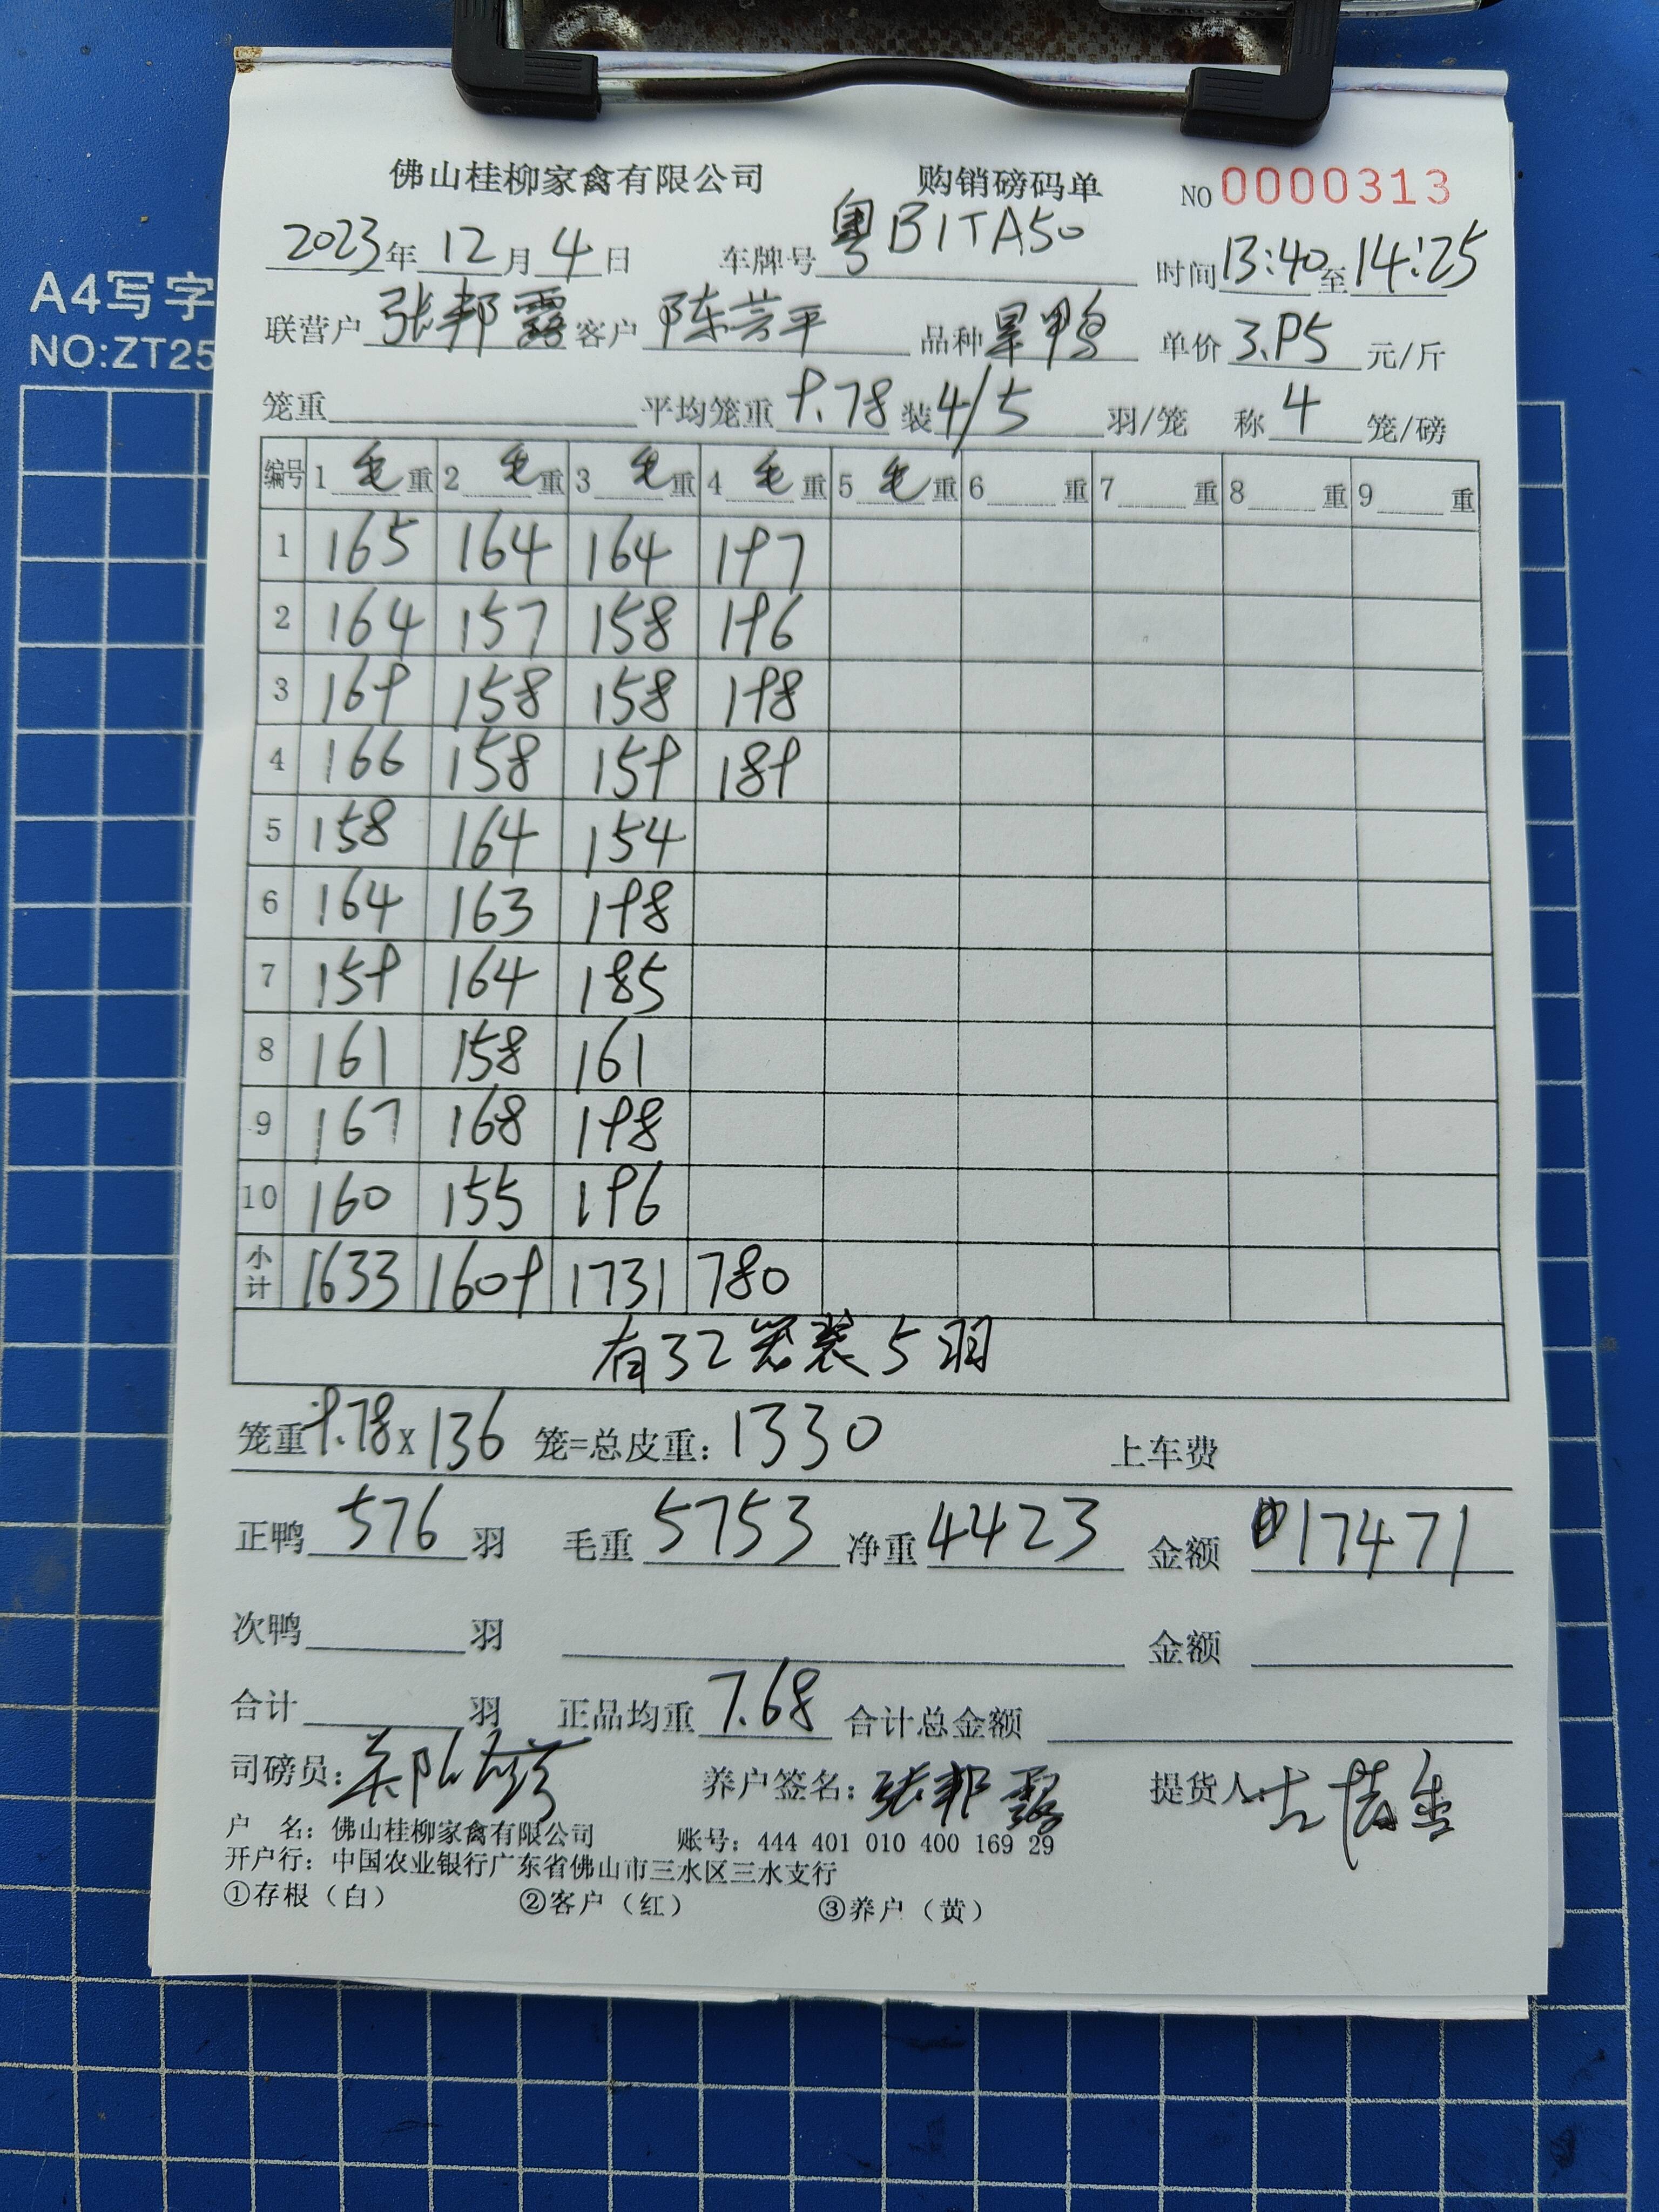 佛山桂柳家禽有限公司 购销磅码单 NO 0000313
2023年12月4日 车牌号 粤B1TA50 时间13:40至14:25
A4写字
NO:ZT25
联营户 张邦露 客户 陈芸平 品种 旱鸭 单价 3.95 元/斤
笼重 平均笼重 9.78 装4/5 羽/笼 称 4 笼/磅
编号 1 毛重 2 毛重 3 毛重 4 毛重 5 毛重 6 重 7 重 8 重 9 重
1 165 164 164 197
2 164 157 158 196
3 169 158 158 198
4 166 158 159 189
5 158 164 154
6 164 163 198
7 159 164 185
8 161 158 161
9 167 168 198
10 160 155 196
小计 1633 1609 1731 780
有32笼装5羽
笼重9.78x136 笼=总皮重：1330 上车费
正鸭 576 羽 毛重 5753 净重 4423 金额 17471
次鸭 羽 金额
合计 羽 正品均重 7.68 合计总金额
司磅员： 养户签名：张邦露 提货人：
户 名：佛山桂柳家禽有限公司 账号：444 401 010 400 169 29
开户行：中国农业银行广东省佛山市三水区三水支行
①存根（白） ②客户（红） ③养户（黄）